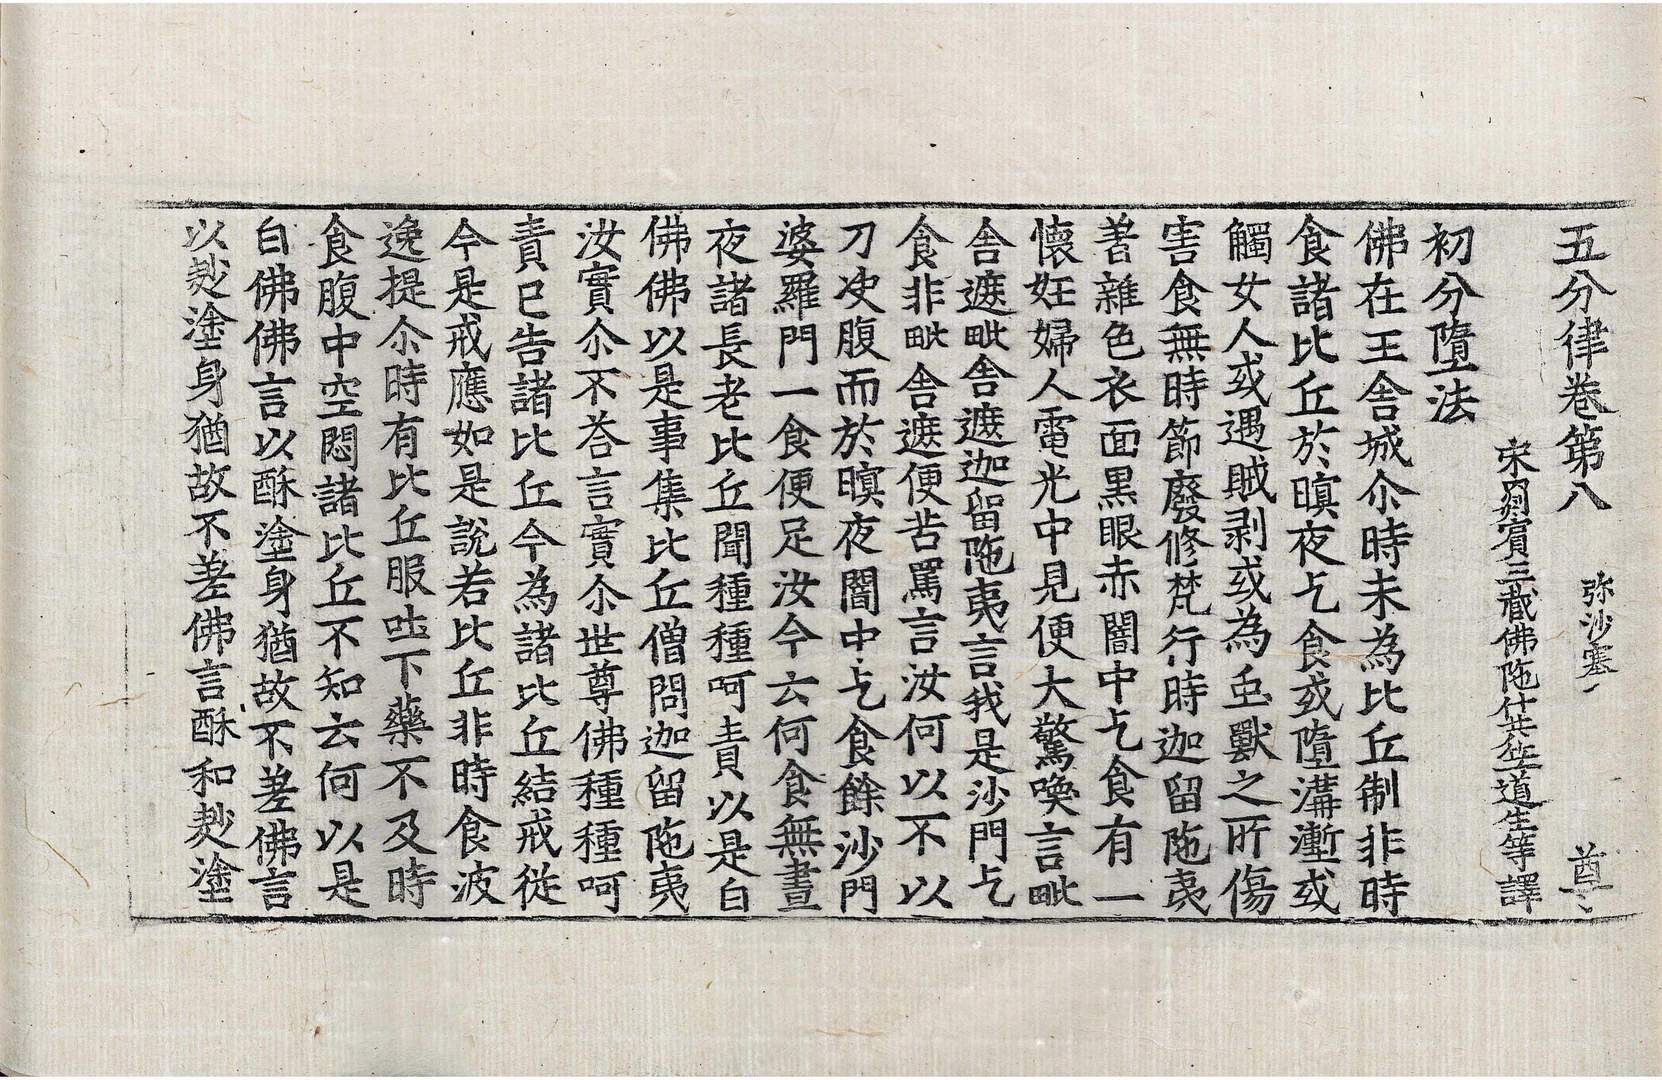 五分律卷第八　弥沙塞　酋
宋罽賓三藏佛陁什共竺道生等譯
初分墮法
佛在王舍城尒時未為比丘制非時
食諸比丘於暝夜乞食或墮溝壍或
觸女人或遇賊剥或為虫獸之所傷
害食無時節廢修梵行時迦留陁夷
著雜色衣面黒眼赤闇中乞食有一
懷妊婦人電光中見便大驚喚言毗
舍遮毗舍遮迦留陁夷言我是沙門乞
食非毗舍遮便苦罵言汝何以不以
刀决腹而於暝夜闇中乞食餘沙門
婆羅門一食便足汝今云何食無晝
夜諸長老比丘聞種種呵責以是白
佛佛以是事集比丘僧問迦留陁夷
汝實尒不荅言實尒世尊佛種種呵
責已告諸比丘今為諸比丘結戒從
今是戒應如是說若比丘非時食波
逸提尒時有比丘服吐下藥不及時
食腹中空悶諸比丘不知云何以是
白佛佛言以酥塗身猶故不差佛言
以麨塗身猶故不差佛言酥和麨塗